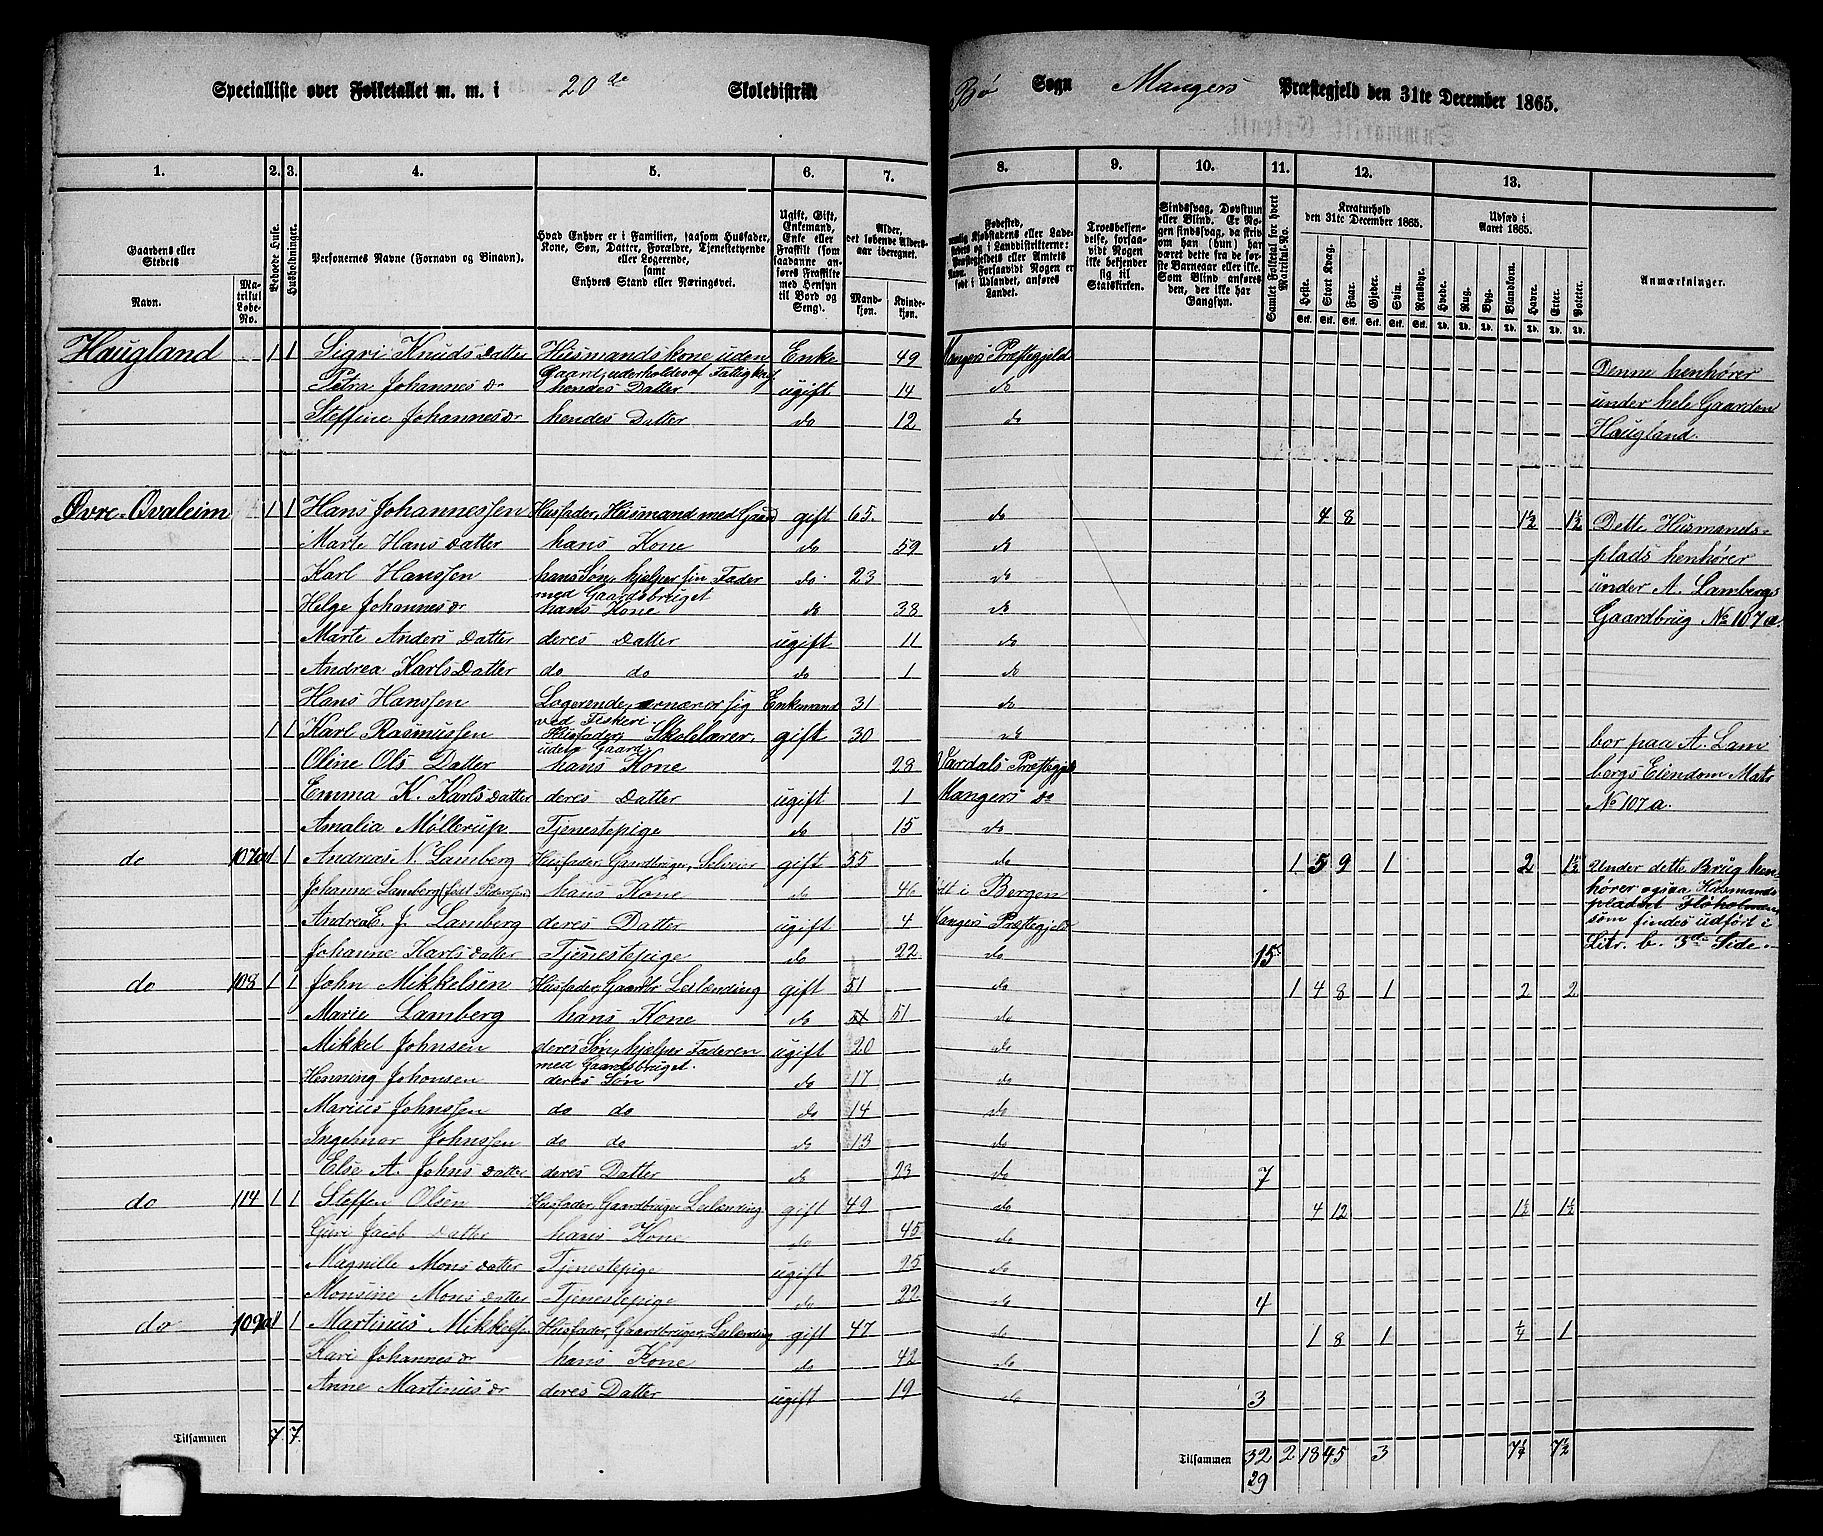 Specialliste over Folketallet m. m. i 20de Skoledistrikt Bø Sogn Mangers Præstegjeld den 31te December 1865.
1. 2. 3. 4. 5. 6. 7. 8. 9. 10. 11. 12. 13.
Gaardens eller Stedets Navn. Matrikul Løbe-No. Beboede Huse. Husholdninger. Personernes Navne (Fornavn og Binavn). Hvad Enhver er i Familien, saasom Husfader, Kone, Søn, Datter, Forældre, Tjenestetyende eller Logerende, samt Enhvers Stand eller Næringsvei. Ugift, Gift, Enkemand, Enke eller Fraskilt (som saadanne anføres Fraskilte med Hensyn til Bord og Seng). Alder, det løbende Alders-aar iberegnet. Mandkjøn. Kvindekjøn.
Trosbekjendelse, forsaavidt Nogen ikke bekjender sig til Statskirken. Samlet Folketal for hvert Matrikul-No. Kreaturhold den 31te December 1865. Udsæd i Aaret 1865. Anmærkninger.
Heste. Stort Kvæg. Faar. Gjeder. Svin. Rensdyr. Hvede. Rug. Byg. Blandkorn. Havre. Erter. Poteter.
Haugland 1 1 Sigri Knuds Datter Husmandskone uden Gaard, underholdes af Fattigk. Enke 49 Mangers Præstegjeld Denne henhører
Petra Johannes Dr hendes Datter ugift 14 do under hele Gaarden
Steffine Johannes Dr hendes Datter do 12 do Haugland.
Øvre-Qvaleim 1 1 Hans Johannessen Husfader, Husmand med Gaard gift 65 do 4 8 1½ 1½ Dette Husmands-
Marte Hans Datter hans Kone do 59 do plads henhører
Karl Hanssen hans Søn, hjælper sin Fader med Gaardsbruget do 23 do under A. Lambergs
Helge Johannes Dr hans Kone do 38 do Gaardbrug No 107a.
Marte Anders Datter deres Datter ugift 11 do
Andrea Karls Datter do do do 1 do
Hans Hanssen Logerende, ernærer sig ved Fiskeri. Enkemand 31 do
1 1 Karl Rasmussen Husfader, Skolelærer, uden Gaard gift 30 do bor paa A. Lam
Oline Ols Datter hans Kone 28 Præstegjeld bergs Eiendom Matr
Emma K. Karls Datter deres Datter ugift 1 Mangers do No 107a.
Amalia Møllerup Tjenestepige do 15 do
do 107a 1 1 Andreas N. Lamberg Husfader, Gaardbruger, Selveier gift 55 do 1 5 9 1 2 1½ Under dette Brug hen-
Johanne Lamberg (født Pedersen) hans Kone do 46 født i Bergen hører ogsaa Husmands
Andrea E. J. Lamberg deres Datter ugift 4 Mangers Præstegjeld pladset Fløholmen
Johanne Karls Datter Tjenestepige do 22 do 15 som findes udført i
Litr. b. 3de Side.
do 108 1 1 John Mikkelsen Husfader, Gaardbr Leilænding gift 51 do 1 4 8 1 2 2
Marie Lamberg hans Kone do 51 51 do
Mikkel Johnsen deres Søn, hjælper Faderen med Gaardsbruget. ugift 20 do
Henning Johnsen deres Søn do 17 do
Marius Johnssen do do do 14 do
Ingelmar Johnssen do do do 13 do
Else A. Johns Datter deres Datter do 23 do 7
do 114 1 1 Steffen Olsen Husfader, Gaardbruger Leilænding gift 49 do 4 12 1½ 1½
Guri Jacob Datter hans Kone do 45 do
Magnille Mons Datter Tjenestepige ugift 25 do
Monsine Mons Datter Tjenestepige do 22 do 4
do 109a 1 1 Martinus Mikkels. Husfader, Gaardbruger, Leilænding gift 47 do 1 8 1 ¼ 1
Kari Johannes Dr hans Kone do 42 do
Anne Martinus Dr deres Datter ugift 19 do 3
Tilsammen 7. 7. Tilsammen 32 2 18 45 3 7¼ 7½
29